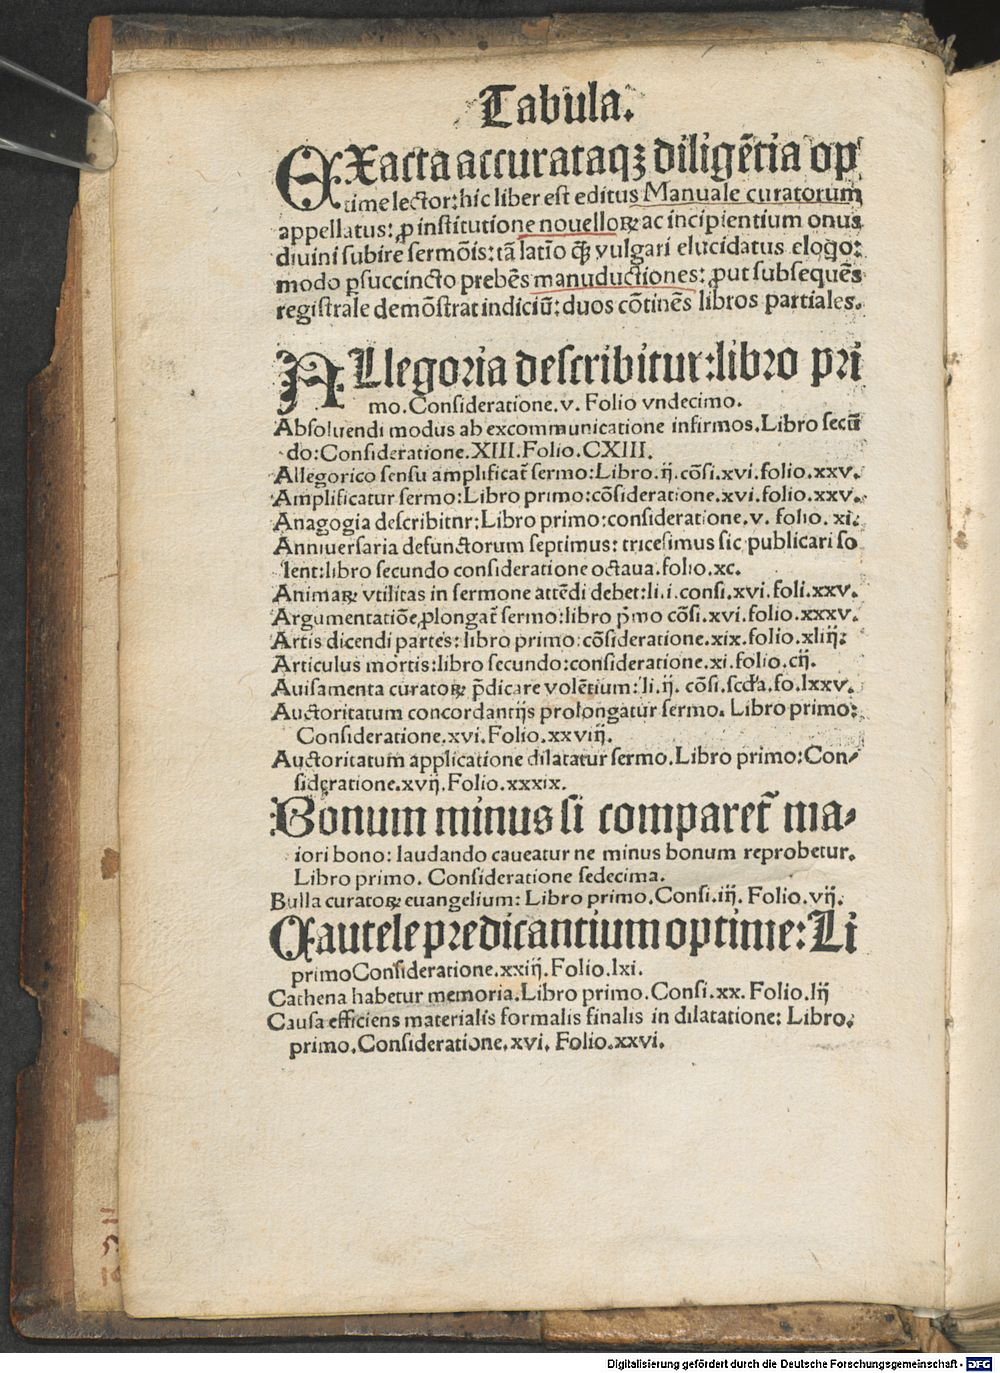 Tabula.
EXacta accurataqꝫ diligẽtia op
time lector: hic liber est editus Manuale curatorum
appellatus: ꝓ institutione nouelloꝝ ac incipientium onus
diuini subire sermõis: tã latio q̃ꝫ vulgari elucidatus elogo:
modo ꝑsuccincto prebẽs manuductiones: ꝓut subsequẽs
registrale demõstrat indiciũ: duos cõtinẽs libros partiales.
ALlegoria describitur: libro pri
mo. Consideratione. v. Folio vndecimo.
Absoluendi modus ab excommunicatione infirmos. Libro secũ
do: Consideratione. XIII. Folio. CXIII.
Allegorico sensu amplificat̃ sermo: Libro. ij. cõsi. xvi. folio. xxv.
Amplificatur sermo: Libro primo: cõsideratione. xvi. folio. xxv.
Anagogia describitnr: Libro primo: consideratione. v. folio. xi.
Anniuersaria defunctorum septimus: tricesimus sic publicari so
lent: libro secundo consideratione octaua. folio. xc.
Animaꝝ vtilitas in sermone attẽdi debet: li. i. consi. xvi. foli. xxv.
Argumentatiõe ꝓlongat̃ sermo: libro p̃mo cõsi. xvi. folio. xxxv.
Artis dicendi partes: libro primo: cõsideratione. xix. folio. xliij:
Articulus mortis: libro secundo: consideratione. xi. folio. cij.
Auisamenta curatoꝝ p̃dicare volẽtium: li. ij. cõsi. scd̃a. fo. lxxv.
Auctoritatum concordantijs prolongatur sermo. Libro primo:
Consideratione. xvi. Folio. xxviij.
Auctoritatum applicatione dilatatur sermo. Libro primo: Con⸗
sideratione. xvij. Folio. xxxix.
Bonum minus si comparet̃ ma⸗
iori bono: laudando caueatur ne minus bonum reprobetur.
Libro primo. Consideratione sedecima.
Bulla curatoꝝ euangelium: Libro primo. Consi. iij. Folio. vij.
Cautele predicantium optime: Li
primo Consideratione. xxiij. Folio. lxi.
Cathena habetur memoria. Libro primo. Consi. xx. Folio. lij
Causa efficiens materialis formalis finalis in dilatatione: Libro.
primo. Consideratione. xvi. Folio. xxvi.
Digitalisierung gefördert durch die Deutsche Forschungsgemeinschaft - DFG